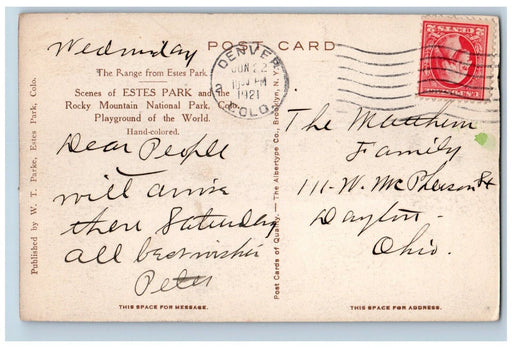 POST CARD
Wednesday
The Range from Estes Park.
Scenes of ESTES PARK and the
Rocky Mountain National Park,
Playground of the World.
Hand-colored.
Dear People
will arrive
there Saturday
all best wishes
Peter
THIS SPACE FOR MESSAGE.
Published by W. T. Parke, Estes Park, Colo.
Post Cards of Quality. — The Albertype Co., Brooklyn, N. Y.
DENVER
JUN 22
1921
COLO.
The
Family
111-W. McPherson St
Dayton-
Ohio.
THIS SPACE FOR ADDRESS.